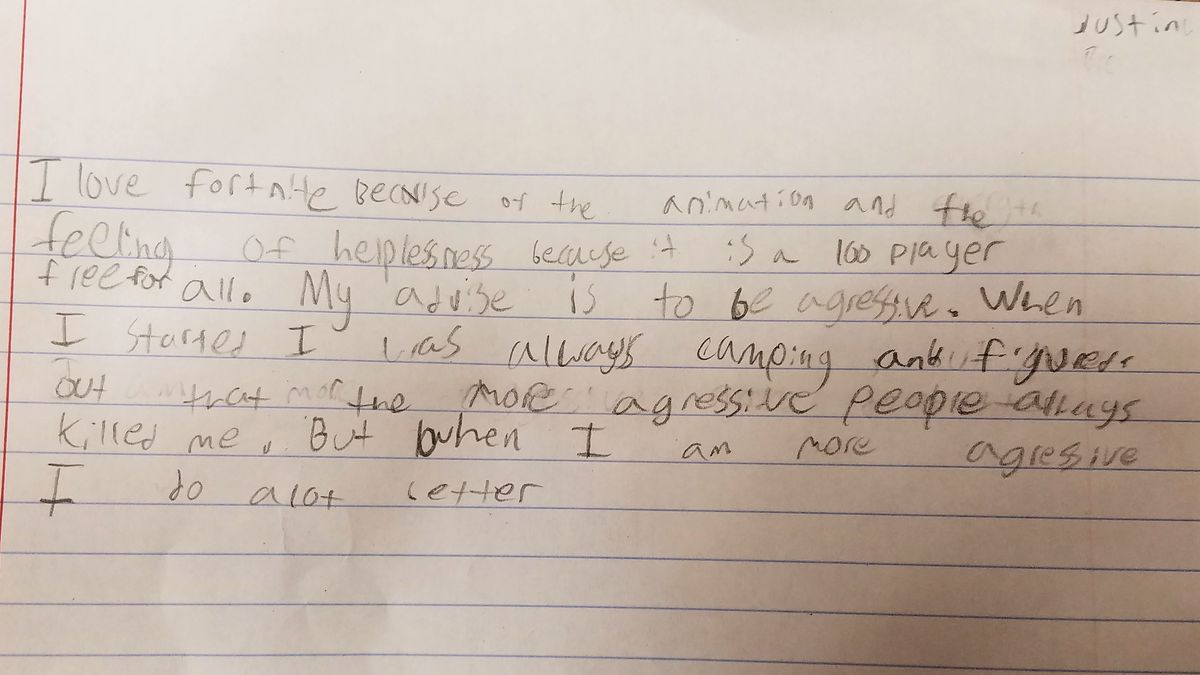 Justin
I love fortnite Because of the animation and the
feeling of helplessness because it is a 100 player
free for all. My advise is to be agressive. When
I started I was always camping and figured
out that the more agressive people always
killed me. But when I am more agressive
I do alot better